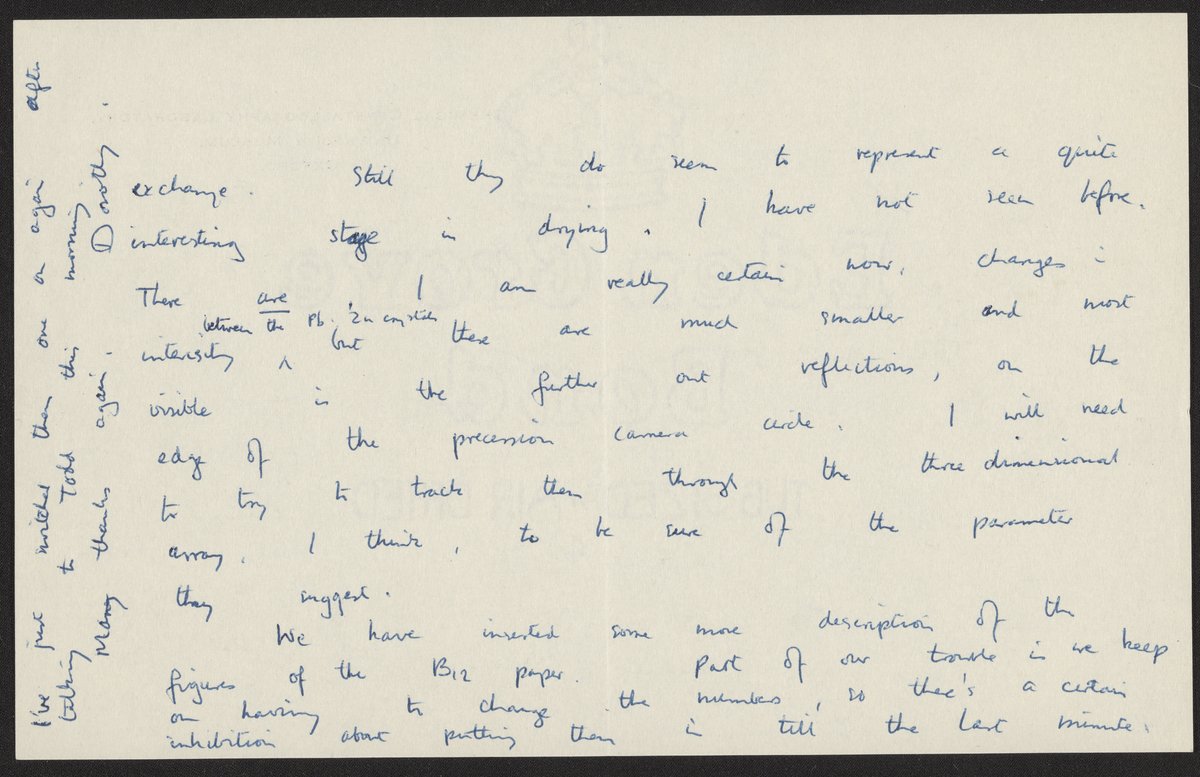 exchange. Still they do seem to represent a quite
interesting stage in drying. I have not seen before.
There are, I am really certain now, changes in
between the Pb, Zn crystals
intensity ^ but these are much smaller and most
visible in the further out reflections, on the
edge of the precession camera circle. I will need
to try to track them through the three dimensional
array, I think, to be sure of the parameter
they suggest.
We have inserted some more description of the
figures of the B12 paper. Part of our trouble is we keep
on having to change the numbers, so there's a certain
inhibition about putting them in till the last minute.
I've just switched them one on again after
talking to Todd this morning
Many thanks again. Dorothy.